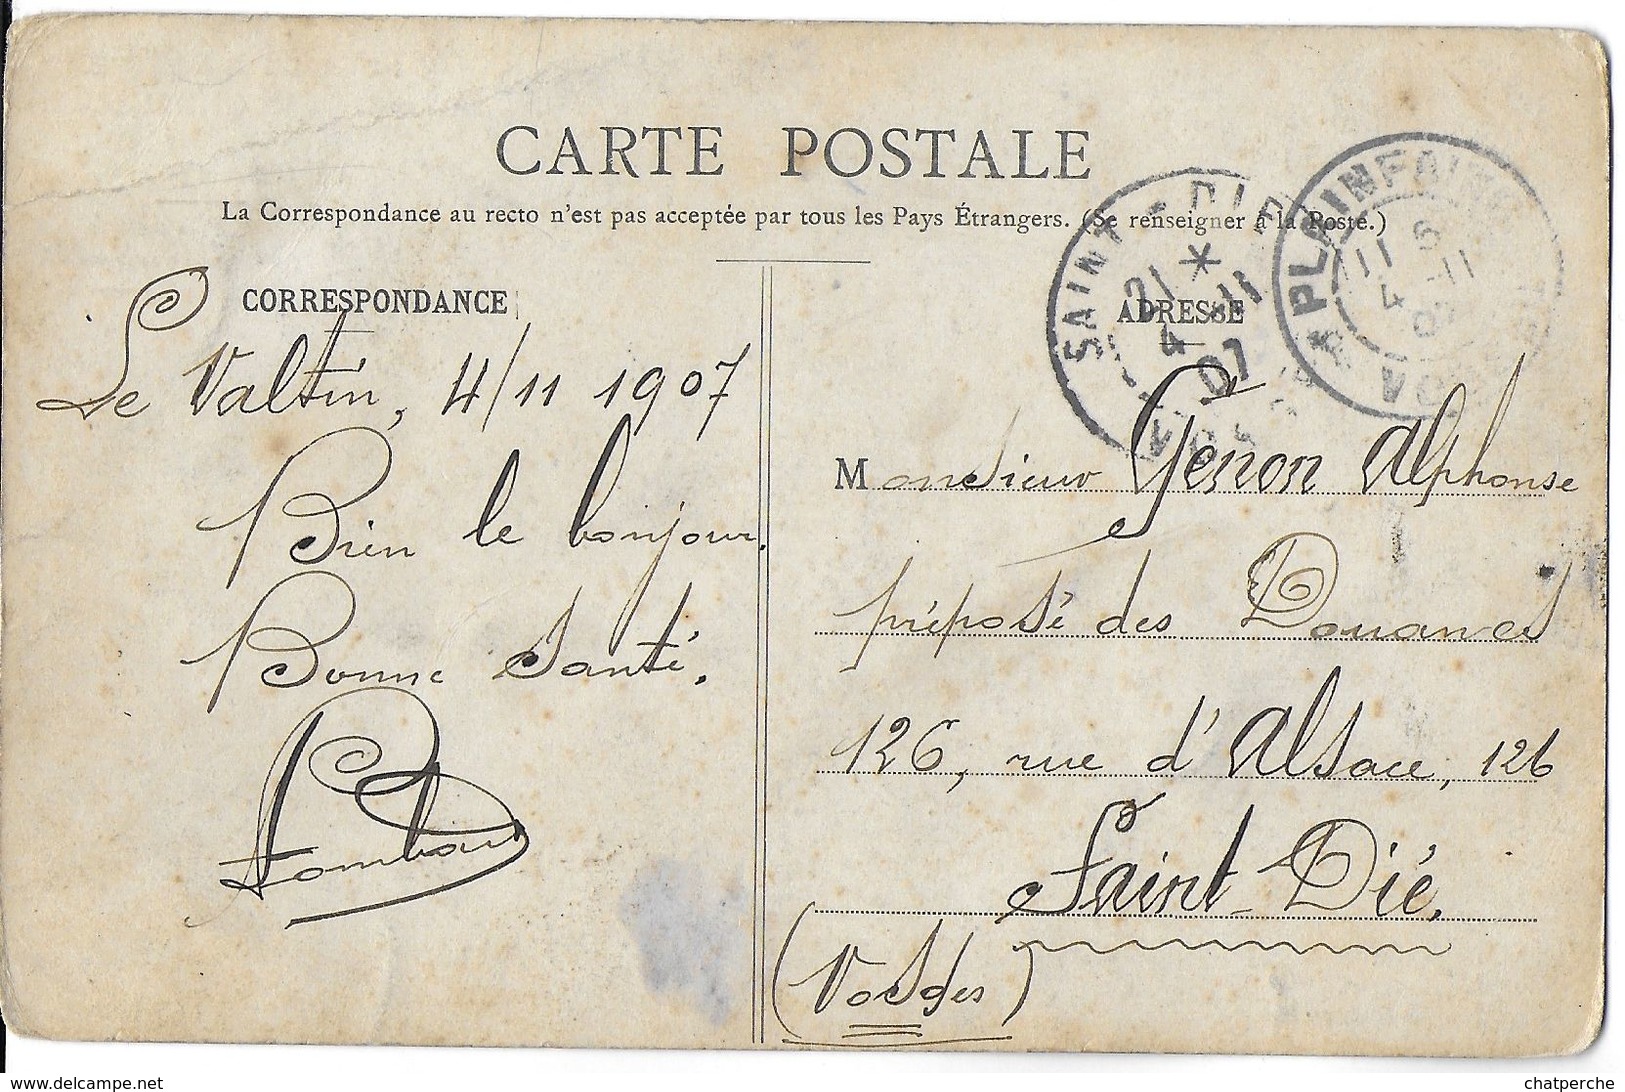 CARTE POSTALE
La Correspondance au recto n'est pas acceptée par tous les Pays Étrangers. (Se renseigner à la Poste.)
CORRESPONDANCE
Le Valtin, 4/11 1907
Bien le bonjour.
Bonne Santé.
ADRESSE
SAINT-DIÉ
21 * 4 -11 07
PLAINFAING
11 6 4 -11 07
VOSGES
Monsieur Génon Alphonse
préposé des Douanes
126, rue d'Alsace, 126
Saint-Dié.
(Vosges)
delcampe.net
chatperche